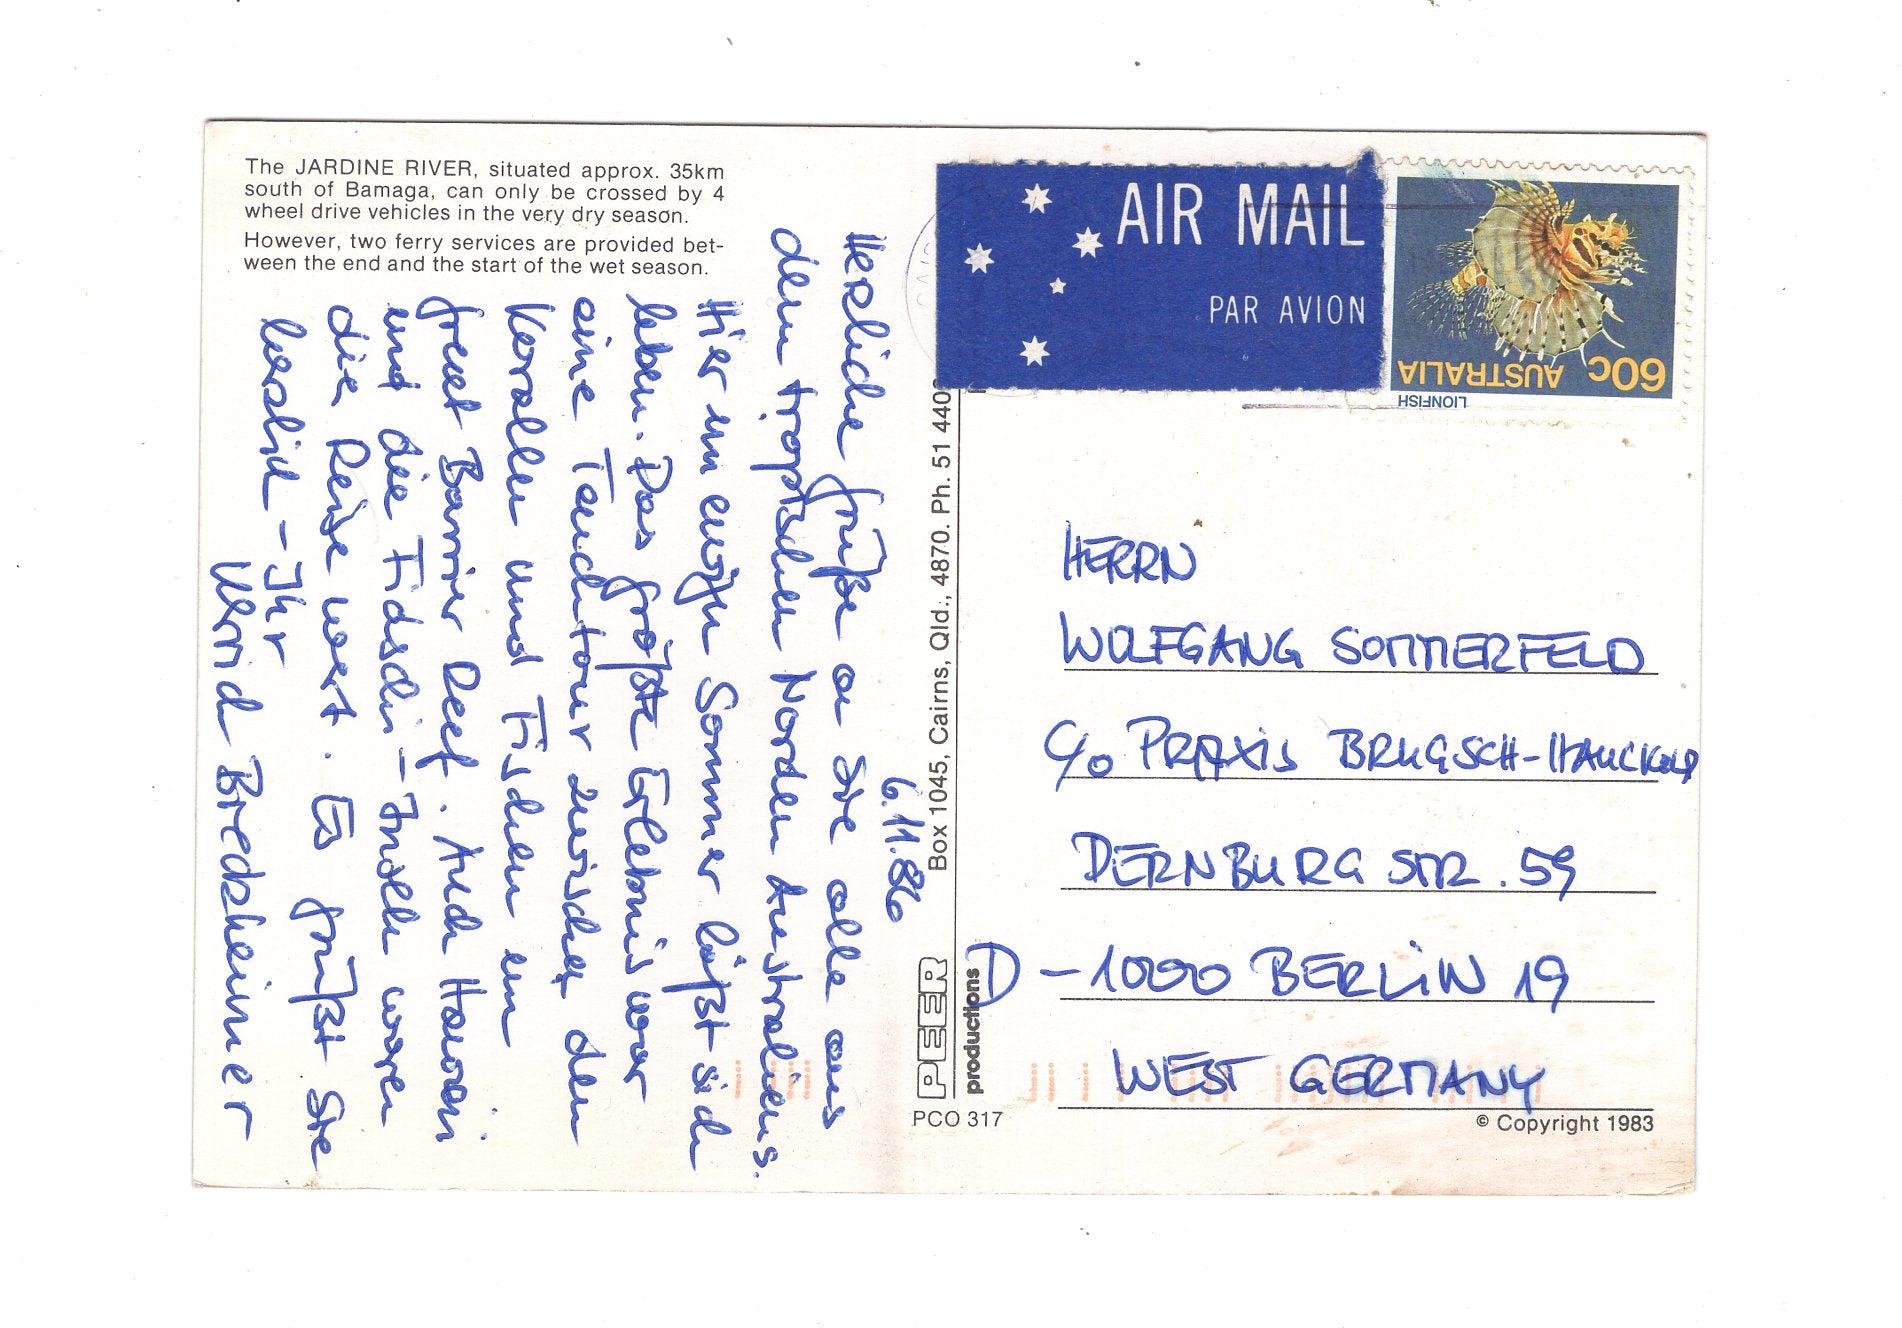 The JARDINE RIVER, situated approx. 35km
south of Bamaga, can only be crossed by 4
wheel drive vehicles in the very dry season.
However, two ferry services are provided bet-
ween the end and the start of the wet season.
6.11.86
Herzliche Grüße an Sie alle aus
dem tropischen Norden Australiens.
Hier im ewigen Sommer läßt sich
leben. Das größte Erlebnis war
eine Tauchtour zwischen den
Korallen und Fischen im
Great Barrier Reef. Auch Hawaii
und die Fidschi-Inseln waren
die Reise wert. Es grüßt Sie
herzlich - Ihr
Breckheimer
AIR MAIL
PAR AVION
60c AUSTRALIA
LIONFISH
Box 1045, Cairns, Qld., 4870. Ph. 51 440
PEER
productions
PCO 317
HERRN
WOLFGANG SOMMERFELD
c/o PRAXIS BRUGSCH-HAUCKOLD
DERNBURG STR. 59
D-1000 BERLIN 19
WEST GERMANY
© Copyright 1983